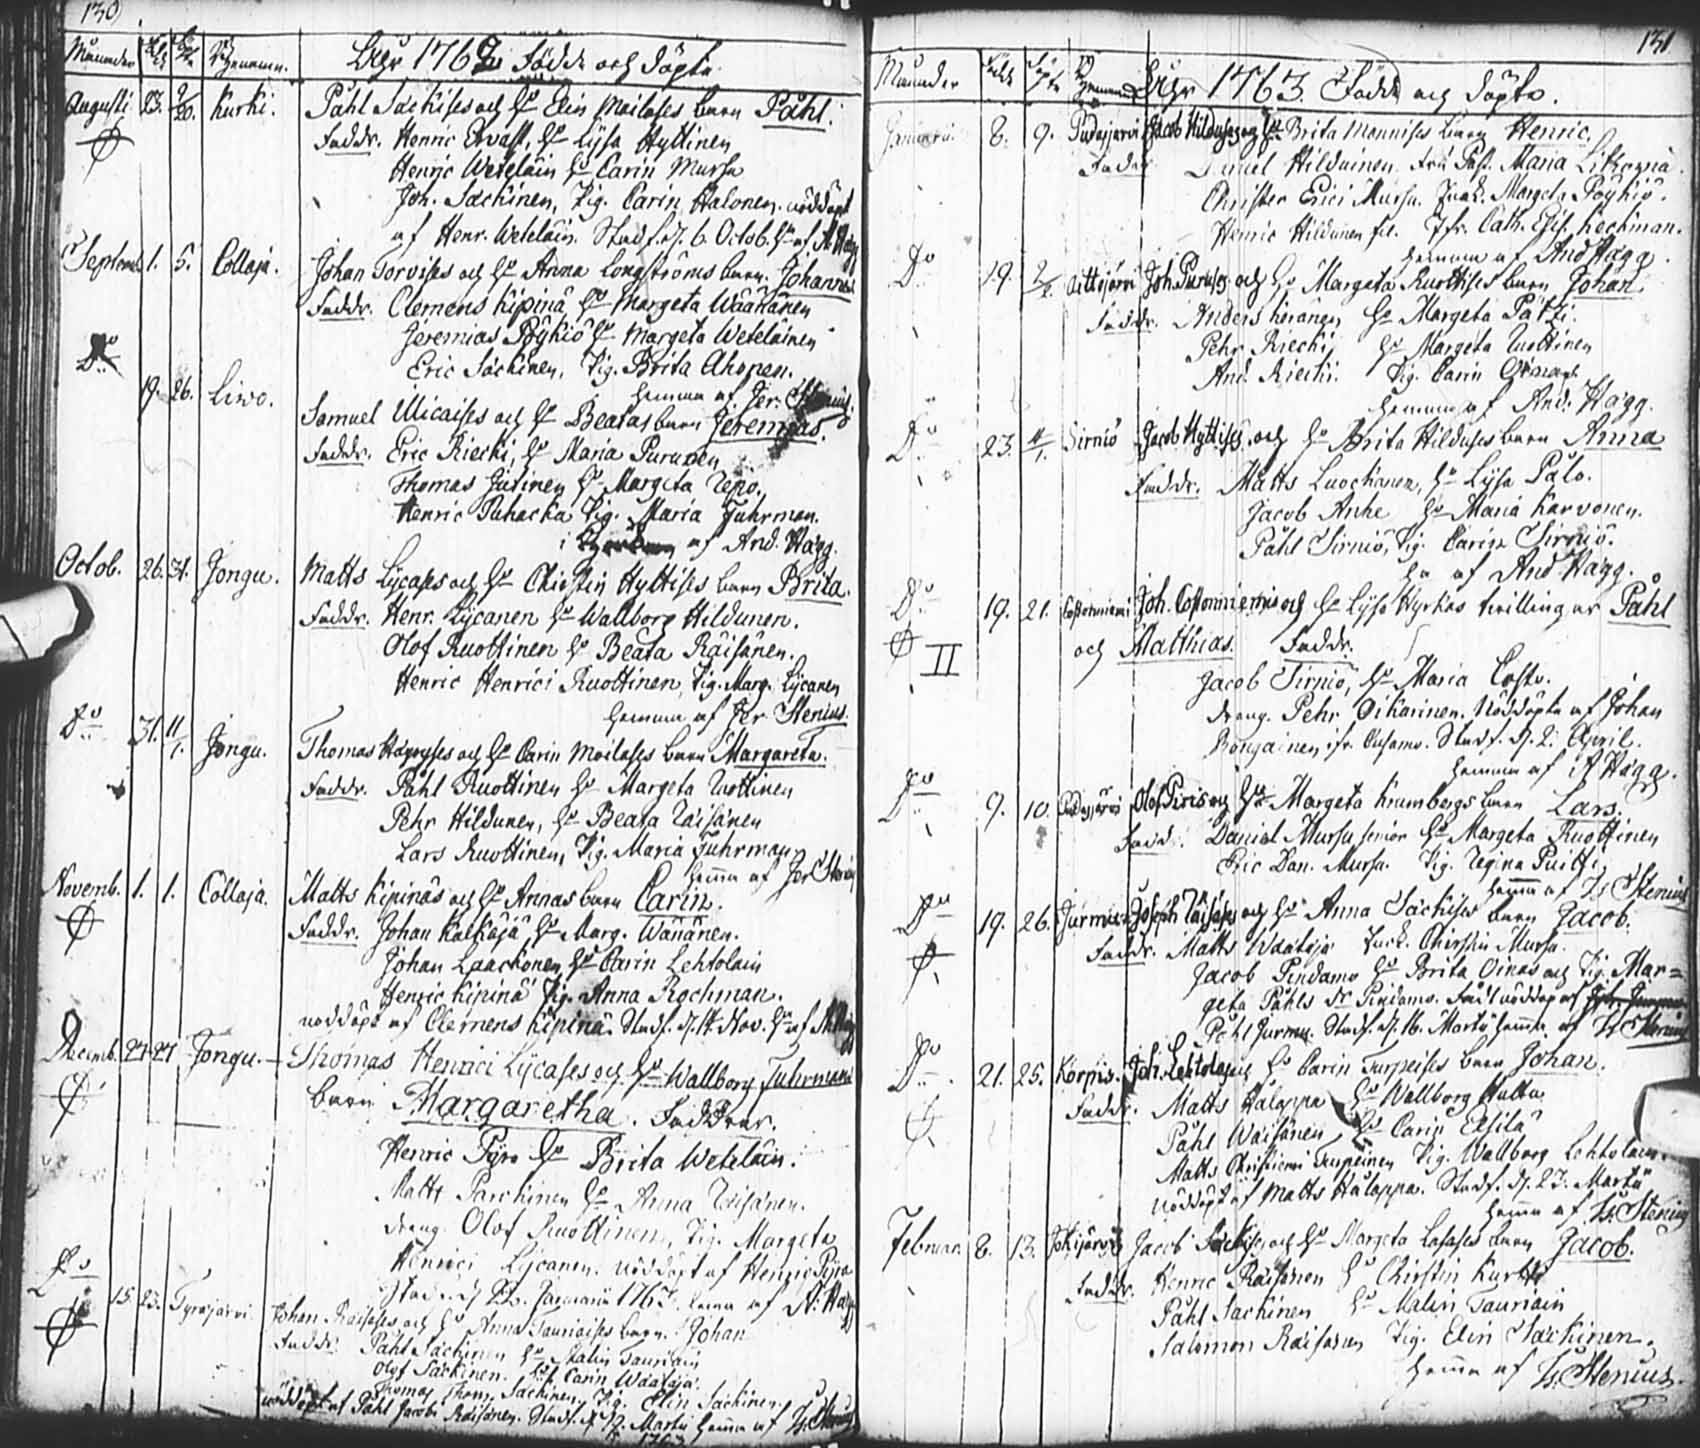 130
Månader Bynamn. Åhr 1762 Födde och döpte
Augusti 23. 9/20. Kurki. Påhl Säckises och Hu Elin Moilases barn Påhl.
Faddr. Henric Ervast, Hu Lysa Hyttinen
Henric Wetelain Hu Carin Mursu
Joh. Säckinen, Pig. Carin Halonen. nöddöpt
af Henr. Wetelain. Stadf. d. 6. Octob. af A Hägg
Septemb. 1. 5. Collaja. Johan Torvises och Hu Anna Longströms barn. Johannes
Faddr. Clemens Kipinä Hu Margeta Wäänänen
Jeremias Pöykiö Hu Margeta Wetelainen
Eric Säckinen, Pig. Brita Ahonen.
hemma af Jer. Stenius.
Do 19. 26. Liwo. Samuel Micaises och Hu Beatas barn Jeremias.
Faddr. Eric Riecki, Hu Maria Puruinen
Thomas Hu Margeta Repo.
Henric Puhacka Pig. Maria Fuhrman.
i af And. Hägg.
Octob. 26. 31. Jongu. Matts Lycases och Hu Christin Hyttises barn Brita.
Faddr. Henr. Lycanen Hu Wallborg Hildunen.
Olof Ruottinen Hu Beata Räisänen.
Henric Henrici Ruottinen, Pig. Marg. Lycanen
hemma af Jer. Stenius.
Do 31. 11/1. Jongu. Thomas och Hu Carin Moilases barn Margareta.
Faddr. Påhl Ruottinen Hu Margeta Ruottinen
Pehr Hildunen, Hu Beata Räisänen
Lars Ruottinen, Pig. Maria Fuhrman
hemma af Jer Stenius
Novemb. 1. 1. Collaja. Matts Kipinäs och Hu Annas barn Carin.
Faddr. Johan Kalkaja Hu Marg. Wänänen.
Johan Laackonen Hu Carin Lehtolain
Henric Kipinä Pig. Anna Rochman.
nöddöpt af Clemens Kipinä. Stadf. d. 14. Nov. af A Hägg
Decemb. 27. 27 Jongu. Thomas Henrici Lycases och Hu Wallborg Fuhrmans
barn Margaretha. Faddrar.
Henric Tyrø Hu Brita Wetelain.
Matts Parckinen Hu Anna Räisänen.
dräng. Olof Ruottinen, Pig. Margeta
Henrici Lycanen. nöddöpt af Henric
Stad. d. Januarii 1763. hemma af A. Hägg
Do 15. 23. Tyräjärvi. Johan Räisäses och Hu Anna Tauriaises barn. Johan
Faddr. Påhl Säckinen Hu Malin Tauriain
Olof Säckinen. Carin Waataja.
Thomas Thom. Säckinen, Pig. Elin Säckinen.
nöddöpt af Påhl Jacobs Räisänen. Stadf. Martii hemma af Is. Stenius
1763
131
Månader Åhr 1763. Födde och döpte.
Januarii 8. 9. Pudasjärvi Jacob Hilduses och Hu Brita Mannises barn Henric.
Faddr. Daniel Hilduinen. Fru Past. Maria
Christer Erici Mursu. Margeta Pöykiö.
Henric Hildunen Jfr. Cath. Elis. Heckman.
hemma af And Hägg.
Do 19. 2/2. Aittojärvi Joh. Puruses och Hu Margeta Ruottises barn Johan.
Faddr. Anders Keränen Hu Margeta Pätzi.
Pehr Riecki, Hu Margeta Ruottinen
And. Riecki. Pig. Carin
hemma af And. Hägg.
Do 23. Sirniö Jacob Hyttises och Hu Brita Hilduses barn Anna
Faddr. Matts Luockanen, Hu Lysa Palo.
Jacob Anhe Hu Maria Karvonen.
Påhl Sirniö, Pig. Carin Sirniö.
af And Hägg.
Do 19. 21. Costonniemi Joh. Costonniemis och Hu Lysa Hyrkäs twillingar Påhl
II och Matthias. Faddr.
Jacob Sirniö, Hu Maria Costo.
dräng. Pehr Oikarinen. Nöddöpte af Johan
Rongainen ifr. Cusamo. Stadf. d. 2. April.
hemma af A Hägg.
Do 9. 10. Pudasjärvi Olof Piris och Hu Margeta Krumbergs barn Lars.
Fadd. Daniel Mursu senior Hu Margeta Ruottinen
Eric Dan. Mursu. Pig. Regina Puitti
hemma af Is Stenius
Do 19. 26. Jurmu Joseph Räisäses och Hu Anna Säckises barn Jacob.
Faddr. Matts Waataja Christin Mursu.
Jacob Pindamo Hu Brita Oinas och Pig. Mar=
geta Påhls Dr Pindamo. nöddöpt af
Påhl Jurmu. Stadf. d. 16. Martii hemma af Is Stenius
Do 21. 25. Korpis. Joh. Lehtolas och Hu Carin Turpeises barn Johan.
Faddr. Matts Halappa Hu Wallborg Hulta
Påhl Waisänen Hu Carin Eksilä
Matts Turpeinen Pig. Wallborg Lehtolain.
Nöddöpt af Matts Halappa. Stadf. d. 27. Martii
hemma af Is. Stenius
Februar. 8. 13. Jokijärvi Jacob Säckises och Hu Margeta Lasases barn Jacob.
Faddr. Henric Räisänen Hu Christin Kurtti
Påhl Säckinen Hu Malin Tauriain
Salomon Räisänen Pig. Elin Säckinen.
hemma af Is. Stenius.